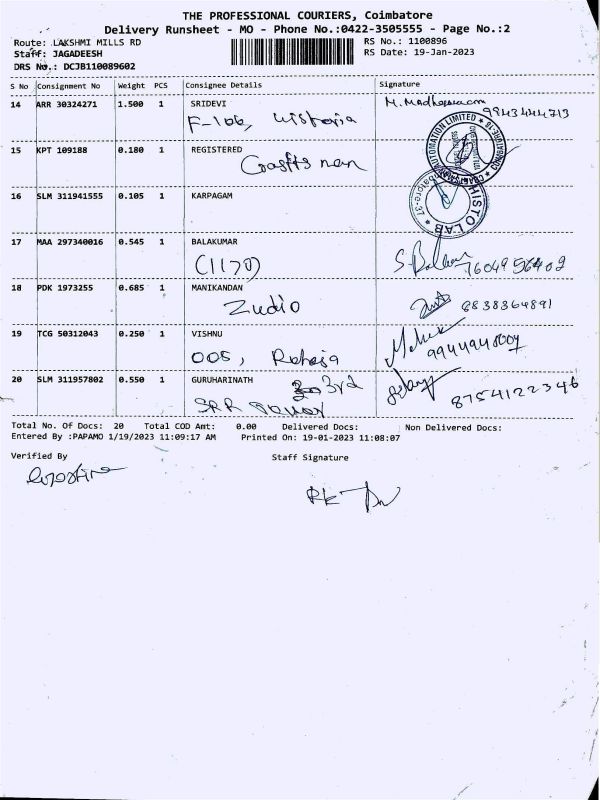 THE PROFESSIONAL COURIERS, Coimbatore
Delivery Runsheet - MO - Phone No.:0422-3505555 - Page No.:2
Route: LAKSHMI MILLS RD RS No.: 1100896
Staff: JAGADEESH RS Date: 19-Jan-2023
DRS No.: DCJB110089602
S No Consignment No Weight PCS Consignee Details Signature
14 ARR 30324271 1.500 1 SRIDEVI
F-106, 9943444713
15 KPT 109188 0.180 1 REGISTERED
AUTOMATION LIMITED
16 SLM 311941555 0.105 1 KARPAGAM
HISTO LAB
17 MAA 297340016 0.545 1 BALAKUMAR
(1170) 7604956402
18 PDK 1973255 0.685 1 MANIKANDAN
Zudio 8838364891
19 TCG 50312043 0.250 1 VISHNU
005, Raheja
20 SLM 311957802 0.550 1 GURUHARINATH
3rd 8754122346
SRR
Total No. Of Docs: 20 Total COD Amt: 0.00 Delivered Docs: Non Delivered Docs:
Entered By :PAPAMO 1/19/2023 11:09:17 AM Printed On: 19-01-2023 11:08:07
Verified By Staff Signature